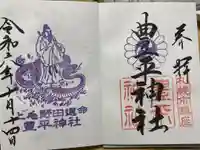 奉拝
豊平神社
令和六年十月十四日
上毛野田道命
豊平神社